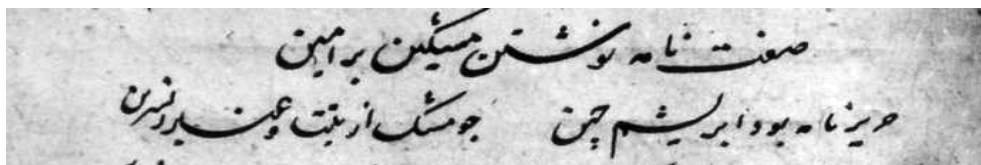 صفت نامه نوشتن مشکین برامین
حریر نامه بود ابریشم چین جو مشک از تبت و عنبر ز نسرین